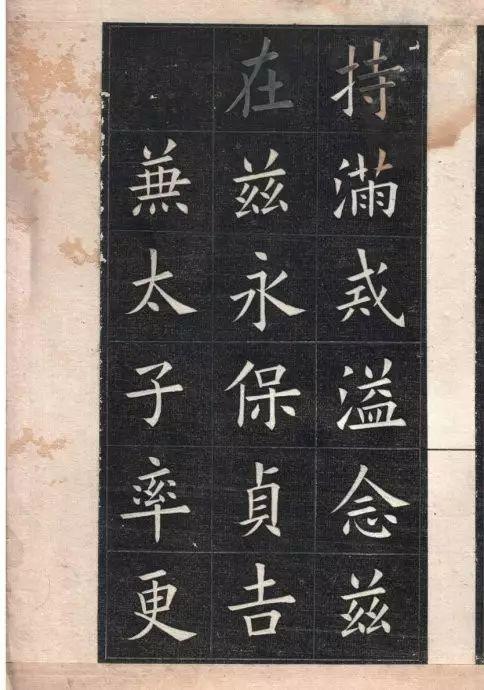 持滿戒溢念茲
在茲永保貞吉
兼太子率更